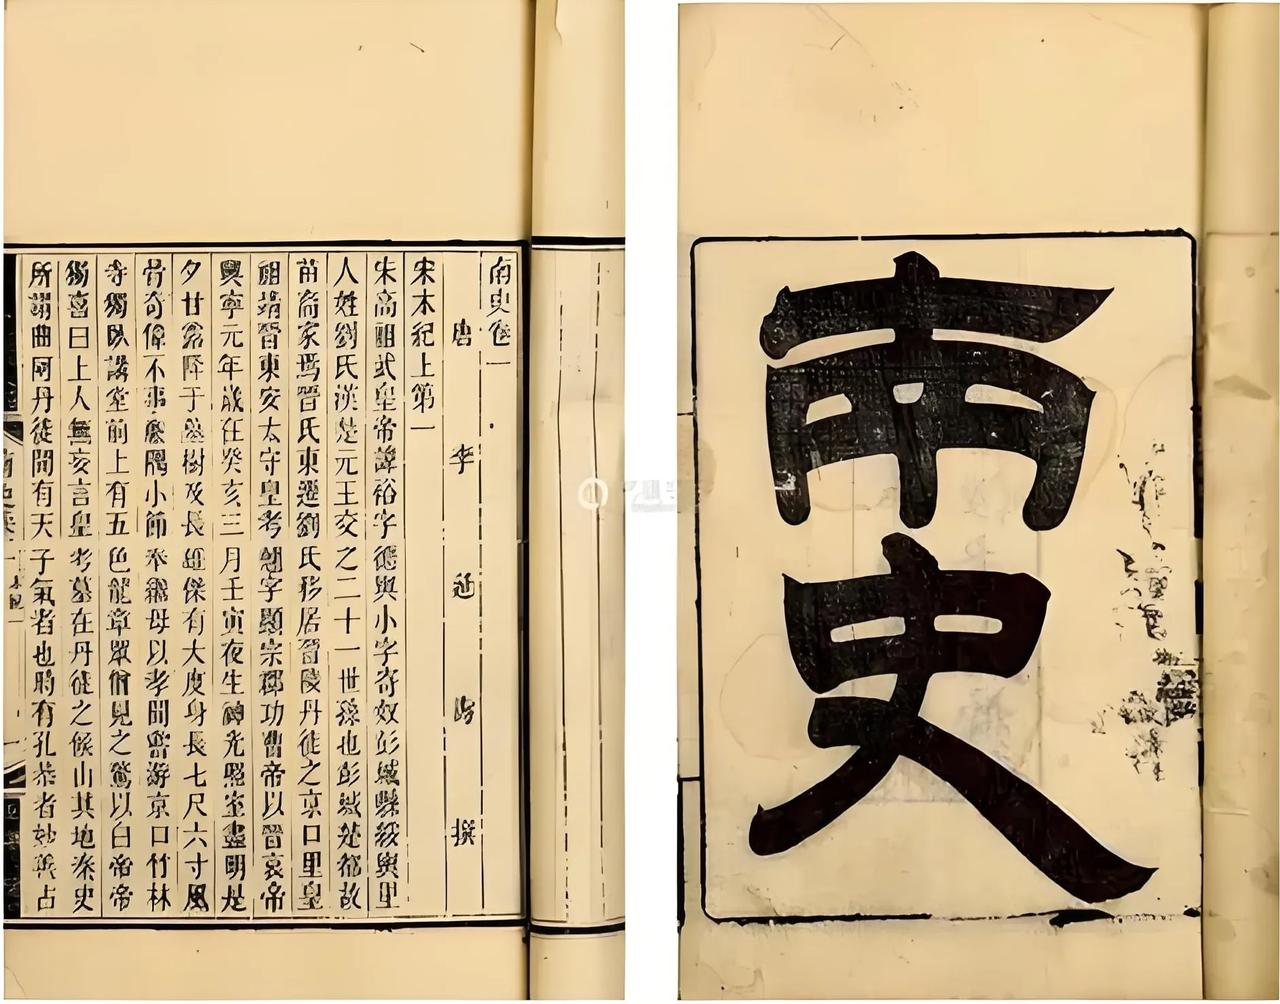 南史
南史卷一
唐 李 延 壽 撰
宋本紀上第一
宋高祖武皇帝諱裕字德輿小字寄奴彭城縣綏輿里
人姓劉氏漢楚元王交之二十一世孫也彭城楚都故
苗裔家焉晉氏東遷劉氏移居晉陵丹徒之京口里皇
祖靖晉東安太守皇考翹字顯宗郡功曹帝以晉哀帝
興寧元年歲在癸亥三月壬寅夜生神光照室盡明是
夕甘露降于墓樹及長雄傑有大度身長七尺六寸風
骨奇偉不事廉隅小節奉繼母以孝聞嘗游京口竹林
寺獨臥講堂前上有五色龍章眾僧見之驚以白帝帝
獨喜曰上人無妄言皇考墓在丹徒之候山其地秦史
所謂曲阿丹徒間有天子氣者也時有孔恭者妙善占